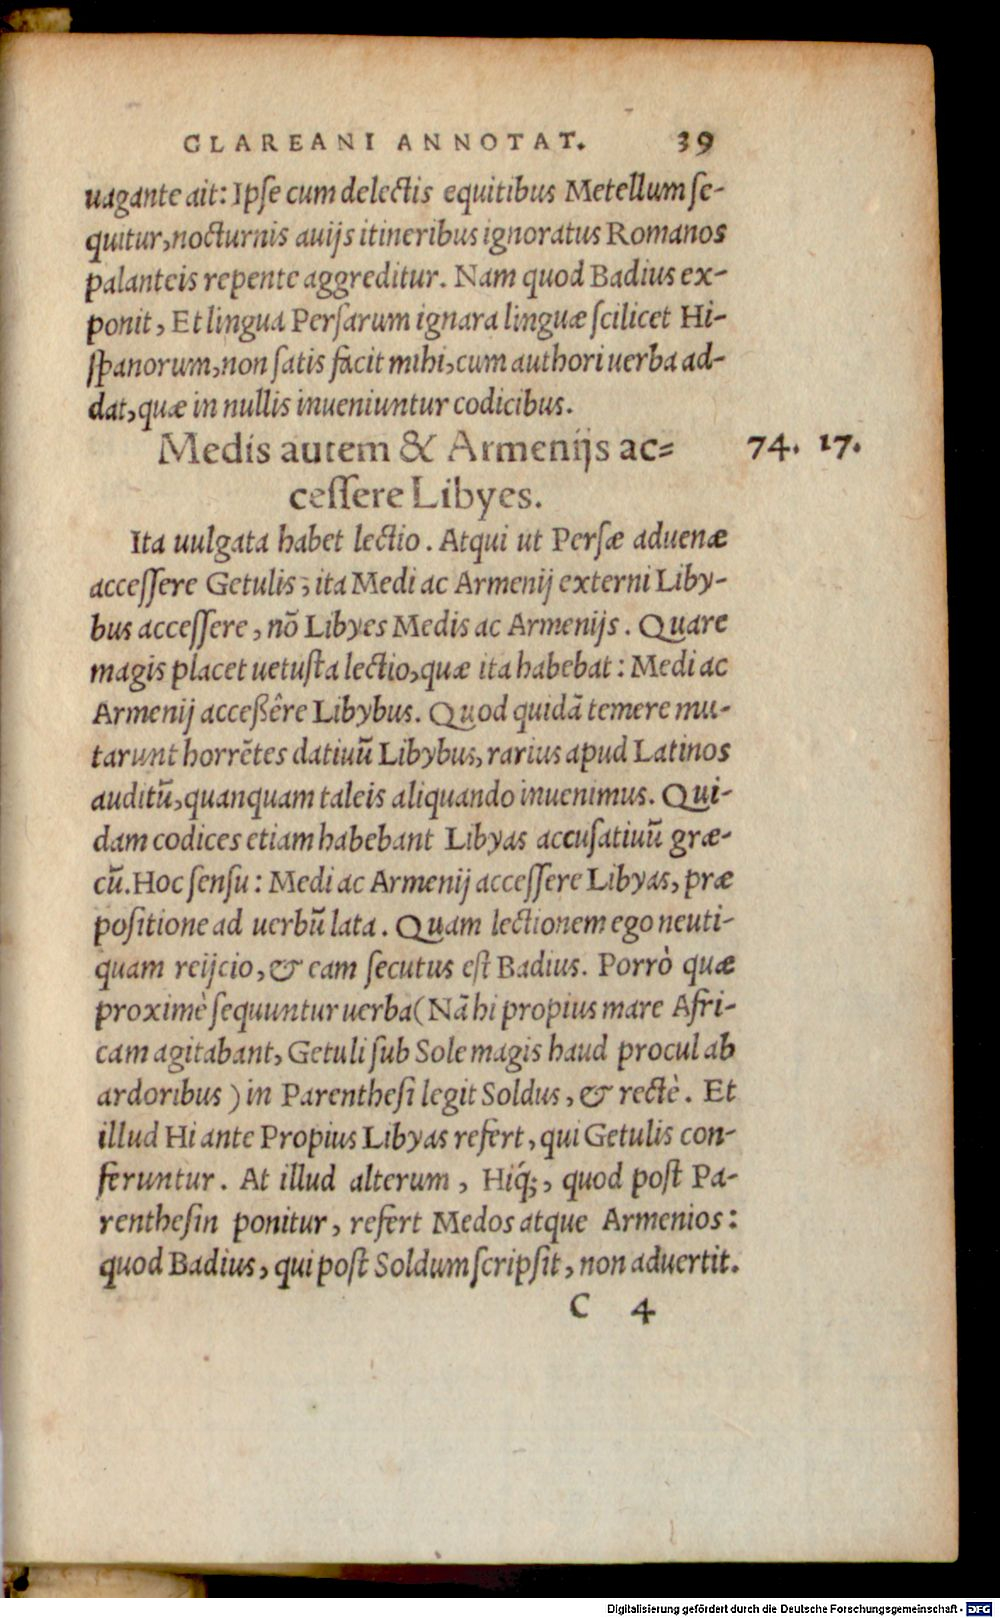 GLAREANI ANNOTAT. 39
uagante ait: Ipſe cum delectis equitibus Metellum ſe-
quitur, nocturnis auijs itineribus ignoratus Romanos
palanteis repente aggreditur. Nam quod Badius ex-
ponit, Et lingua Perſarum ignara linguæ ſcilicet Hi-
ſpanorum, non ſatis facit mihi, cum authori uerba ad-
dat, quæ in nullis inueniuntur codicibus.
Medis autem & Armenijs ac= 74. 17.
ceſſere Libyes.
Ita uulgata habet lectio. Atqui ut Perſæ aduenæ
acceſſere Getulis, ita Medi ac Armenij externi Liby-
bus acceſſere, nõ Libyes Medis ac Armenijs. Quare
magis placet uetuſta lectio, quæ ita habebat: Medi ac
Armenij acceßêre Libybus. Quod quidã temere mu-
tarunt horrẽtes datiuũ Libybus, rarius apud Latinos
auditũ, quanquam taleis aliquando inuenimus. Qui-
dam codices etiam habebant Libyas accuſatiuũ græ-
cũ. Hoc ſenſu: Medi ac Armenij acceſſere Libyas, præ
poſitione ad uerbũ lata. Quam lectionem ego neuti-
quam reijcio, & eam ſecutus eſt Badius. Porrò quæ
proximè ſequuntur uerba (Nã hi propius mare Afri-
cam agitabant, Getuli ſub Sole magis haud procul ab
ardoribus) in Parentheſi legit Soldus, & rectè. Et
illud Hi ante Propius Libyas refert, qui Getulis con-
feruntur. At illud alterum, Hiq́;, quod poſt Pa-
rentheſin ponitur, refert Medos atque Armenios:
quod Badius, qui poſt Soldum ſcripſit, non aduertit.
C 4
Digitalisierung gefördert durch die Deutsche Forschungsgemeinschaft - DFG